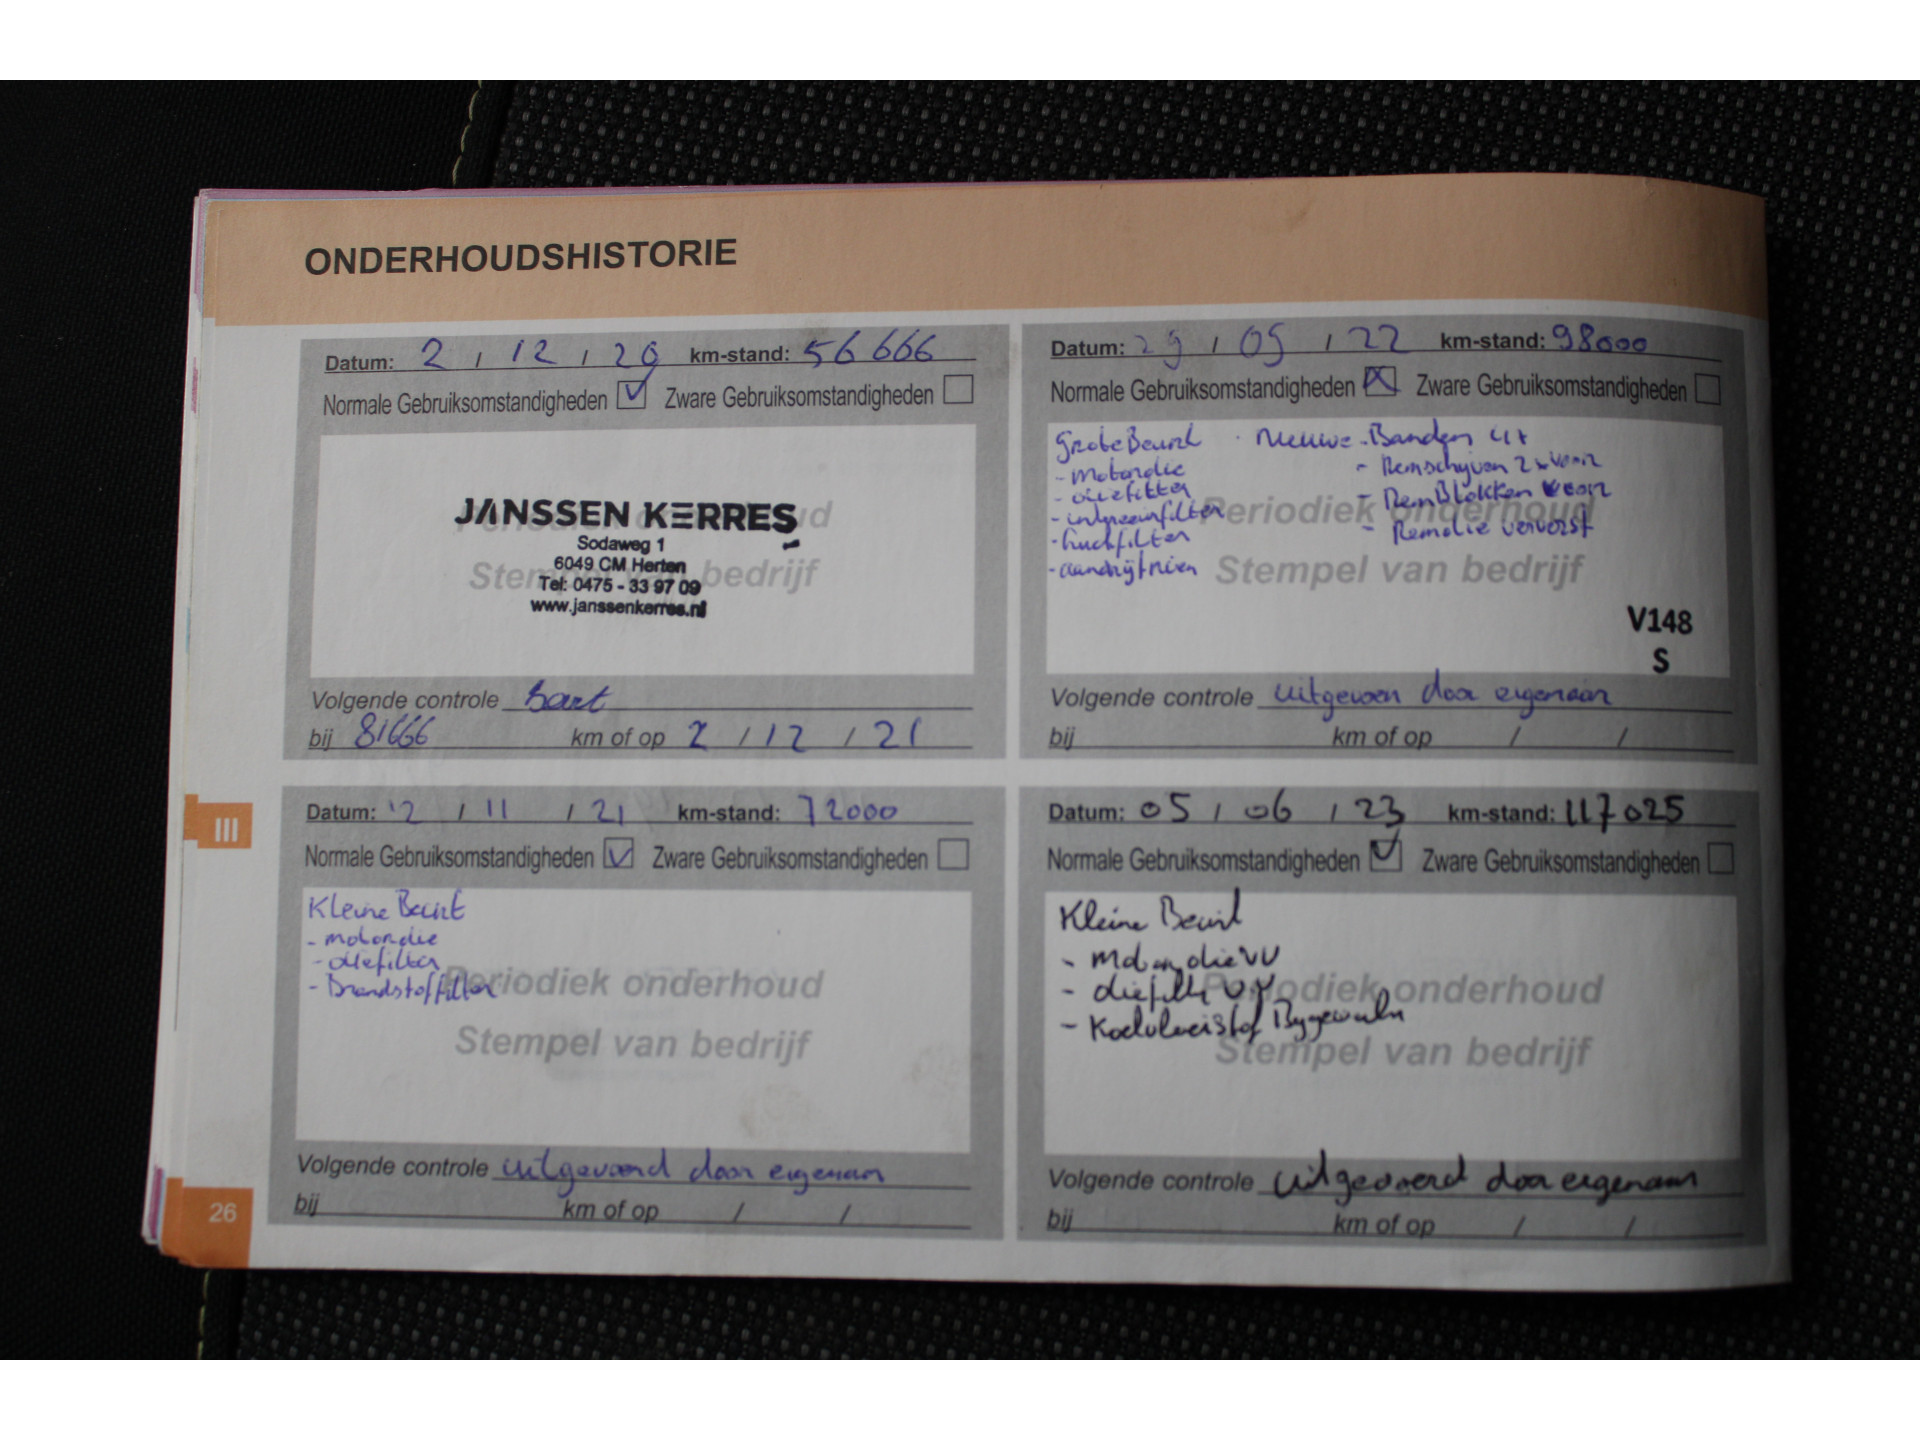 ONDERHOUDSHISTORIE
Datum: 2 / 12 / 20 km-stand: 56 666
Normale Gebruiksomstandigheden Zware Gebruiksomstandigheden
Periodiek onderhoud
Stempel van bedrijf
JANSSEN KERRES
Sodaweg 1
6049 CM Herten
Tel: 0475 - 33 97 09
www.janssenkerres.nl
Volgende controle
bij 81666 km of op 2 / 12 / 21
Datum: 29 / 09 / 22 km-stand: 98000
Normale Gebruiksomstandigheden Zware Gebruiksomstandigheden
Grote Beurt · Nieuwe - Banden 4x
- motorolie - Remschijven 2x voor
- oliefilter - RemBlokken voor
- interieurfilter - Remolie ververst
- luchtfilter
- aandrijfriem
Periodiek onderhoud
Stempel van bedrijf
V148
S
Volgende controle uitgevoen door eigenaar
bij km of op / /
III
Datum: 12 / 11 / 21 km-stand: 72000
Normale Gebruiksomstandigheden Zware Gebruiksomstandigheden
Kleine Beurt
- motorolie
- oliefilter
- Brandstoffilter
Periodiek onderhoud
Stempel van bedrijf
Volgende controle uitgevoerd door eigenaar
bij km of op / /
Datum: 05 / 06 / 23 km-stand: 117025
Normale Gebruiksomstandigheden Zware Gebruiksomstandigheden
Kleine Beurt
- Motorolie VV
- oliefilter VV
- Koelvloeistof Bygevuld
Periodiek onderhoud
Stempel van bedrijf
Volgende controle uitgevoerd door eigenaar
bij km of op / /
26